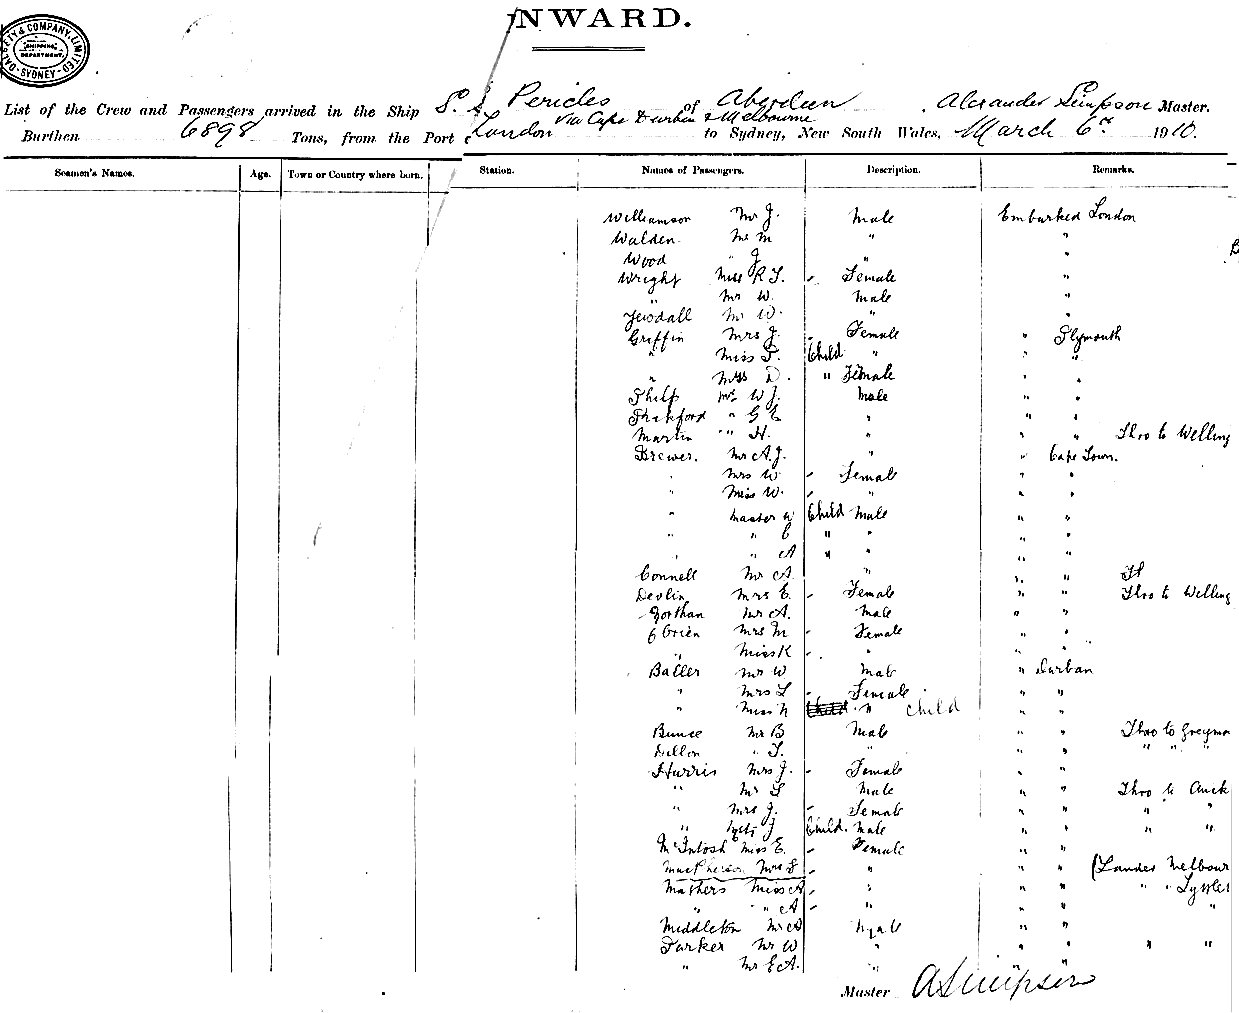 INWARD.
DALGETY & COMPANY, LIMITED
SHIPPING DEPARTMENT
SYDNEY
List of the Crew and Passengers arrived in the Ship S.S. Pericles of Aberdeen, Alexander Simpson Master.
via Cape Durban & Melbourne
Burthen 6898 Tons, from the Port London to Sydney, New South Wales, March 6th 1910.
Seamen's Names. Age. Town or Country where born. Station. Names of Passengers. Description. Remarks.
Williamson Mr J. Male Embarked London
Walden Mr M " "
Wood " J " "
Wright Miss R T. - Female "
" Mr W. Male "
Mr W. " "
Griffin Mrs J. - Female " Plymouth
" Miss P. Child " " "
" Miss D. " Female " "
Philp Mr W J. Male " "
" G E " " "
Martin " " H. " " " Thro to Welling
Brewer. Mr A. J. " " Cape Town.
" Mrs W - Female " "
" Miss W. - " " "
" Master W Child Male " "
" " C " " " "
" " A " " " "
Connell Mr A. " " "
Devlin Mrs E. - Female " " Thro to Welling
Mr A. Male " "
O'Brien Mrs M - Female " "
" Miss K - " " "
Mr W Male " Durban
" Mrs L - Female " "
" Miss N Child " Child " "
Bunce Mr B Male " " Thro to Greymo
Dillon " T. " " " " " "
Harris Mrs J. - Female " "
" Mr L Male " " Thro to Auck
" Mrs J. - Female " " " "
" J Child. Male " " " "
McIntosh Miss E. - Female " "
MacPherson Mrs L - " " " (Landed Melbour
Mathers Miss A - " " " " "
" " A - " " " "
Middleton Mr A Male " "
Parker Mr W " " " " "
" Mr E A. " " "
Master A Simpson